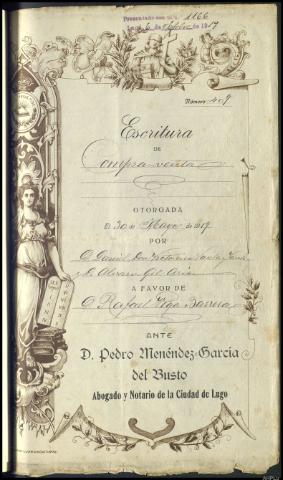 Presentado con el nº 1166
Lugo 6 de de 1917
Número 409
Escritura
DE
Compra-venta
OTORGADA
El 30 de Mayo de 1917
POR
D. Daniel, Don Victorino
y D. Alvaro Gil
A FAVOR DE
D. Rafael Vega Barrera
ANTE
D. Pedro Menéndez-García
del Busto
Abogado y Notario de la Ciudad de Lugo
AHPLU